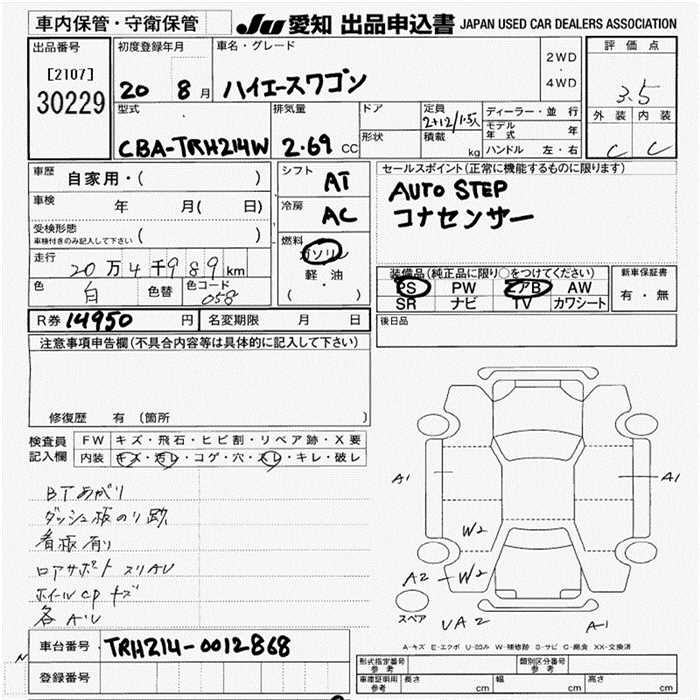 車内保管・守衛保管
JU 愛知 出品申込書 JAPAN USED CAR DEALERS ASSOCIATION
出品番号
[2107]
30229
初度登録年月
20 8月
車名・グレード
ハイエースワゴン
2WD
・
4WD
評価点
3.5
外装 内装
C C
型式
CBA-TRH214W
排気量
2.69 CC
ドア
形状
定員
2+12/1.5人
積載
kg
ディーラー・並行
モデル年式 年
ハンドル 左・右
車歴
自家用・( )
車検
年 月( 日)
受検形態
車検付きのみ記入して下さい ( )
走行
20万4千989km
色 白 色替 色コード 058
シフト
AT
冷房
AC
燃料
ガソリン
軽・油
( ・ )
セールスポイント(正常に機能するものに限ります)
AUTO STEP
コナセンサー
装備品(純正品に限り○をつけてください)
PS PW エアB AW
SR ナビ TV カワシート
新車保証書
有・無
R券 14950 円 名変期限 月 日
後日品
注意事項申告欄(不具合内容等は具体的に記入して下さい)
修復歴 有(箇所 )
検査員記入欄
FW キズ・飛石・ヒビ割・リペア跡・X要
内装 キズ・汚レ・コゲ・穴・スレ・キレ・破レ
BTあがり
ダッシュ板のり跡
看板有り
ロアサポート スリAU
ホイールcp キズ
各AU
A1
A1
W2
A2 W2
スペア
UA2
A-1
A-キズ E-エクボ U-凹み W-補修跡 S-サビ C-腐食 XX-交換済
車台番号
TRH214-0012868
登録番号
N
形式指定番号 参考
類別区分番号 参考
車庫証明用 参考
長さ cm 幅 cm 高さ cm